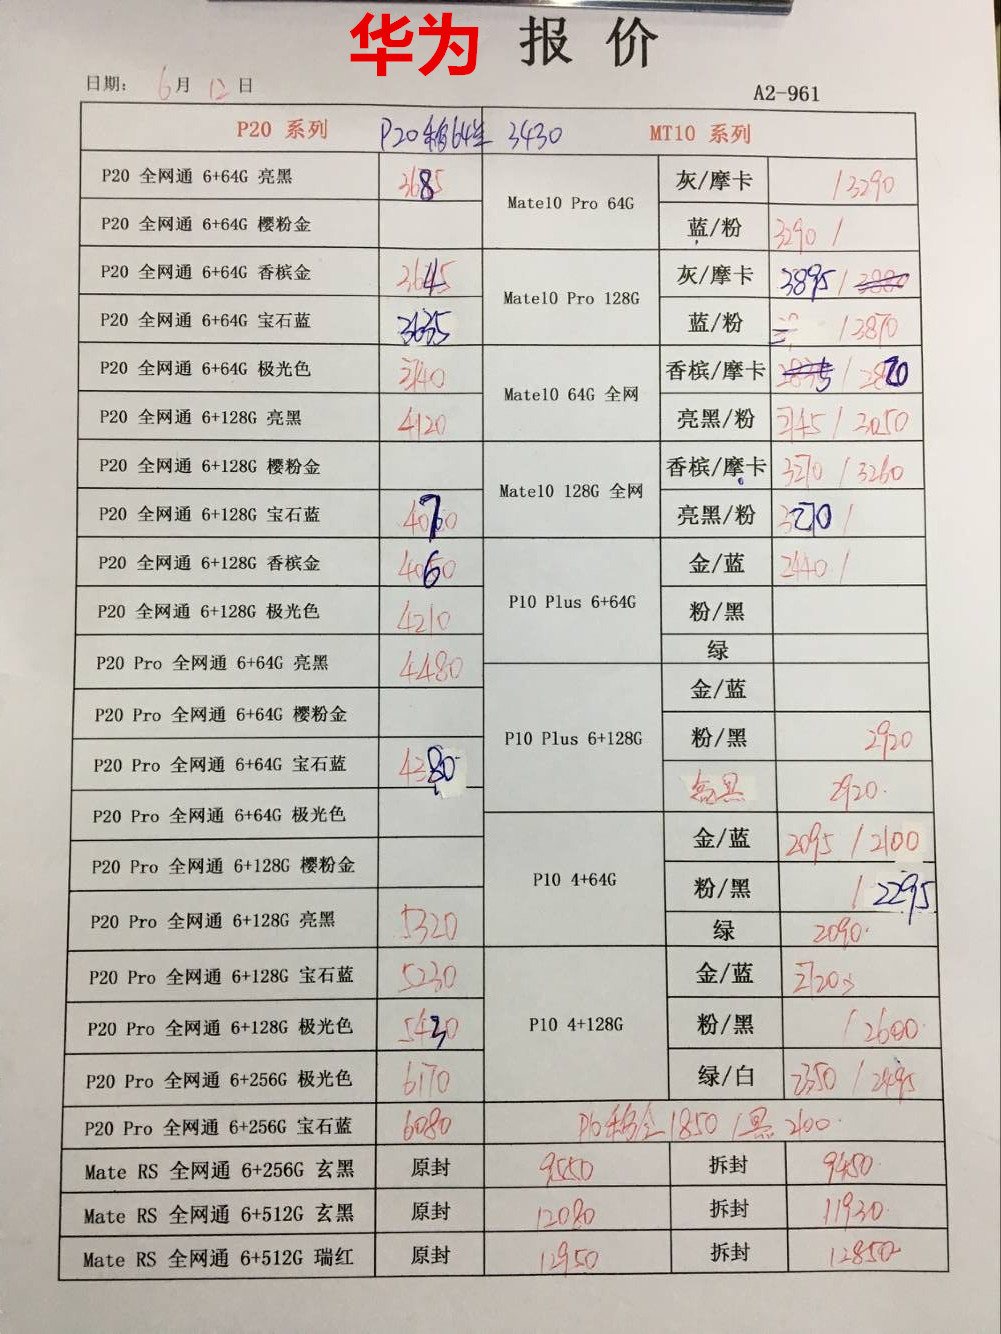 华为 报 价
日期: 6月 12日
A2-961
P20 系列 P20移64兰 3430 MT10 系列
P20 全网通 6+64G 亮黑 3685
P20 全网通 6+64G 樱粉金
P20 全网通 6+64G 香槟金 3645
P20 全网通 6+64G 宝石蓝 3635
P20 全网通 6+64G 极光色 3740
P20 全网通 6+128G 亮黑 4120
P20 全网通 6+128G 樱粉金
P20 全网通 6+128G 宝石蓝 4070
P20 全网通 6+128G 香槟金 4060
P20 全网通 6+128G 极光色 4210
P20 Pro 全网通 6+64G 亮黑 4480
P20 Pro 全网通 6+64G 樱粉金
P20 Pro 全网通 6+64G 宝石蓝 4380
P20 Pro 全网通 6+64G 极光色
P20 Pro 全网通 6+128G 樱粉金
P20 Pro 全网通 6+128G 亮黑 5320
P20 Pro 全网通 6+128G 宝石蓝 5230
P20 Pro 全网通 6+128G 极光色 5430
P20 Pro 全网通 6+256G 极光色 6170
P20 Pro 全网通 6+256G 宝石蓝 6080
Mate10 Pro 64G
灰/摩卡 / 3290
蓝/粉 3290 /
Mate10 Pro 128G
灰/摩卡 3895 /
蓝/粉 / 3870
Mate10 64G 全网
香槟/摩卡 / 2870
亮黑/粉 3145 / 3050
Mate10 128G 全网
香槟/摩卡 3270 / 3260
亮黑/粉 3270 /
P10 Plus 6+64G
金/蓝 2440 /
粉/黑
绿
P10 Plus 6+128G
金/蓝
粉/黑 2920
2920
P10 4+64G
金/蓝 2095 / 2100
粉/黑 / 2295
绿 2090
P10 4+128G
金/蓝
粉/黑 / 2600
绿/白 2350 / 2495
P10移金1850 / 黑2100
Mate RS 全网通 6+256G 玄黑 原封 9550 拆封 9450
Mate RS 全网通 6+512G 玄黑 原封 12080 拆封 11930
Mate RS 全网通 6+512G 瑞红 原封 12950 拆封 12850